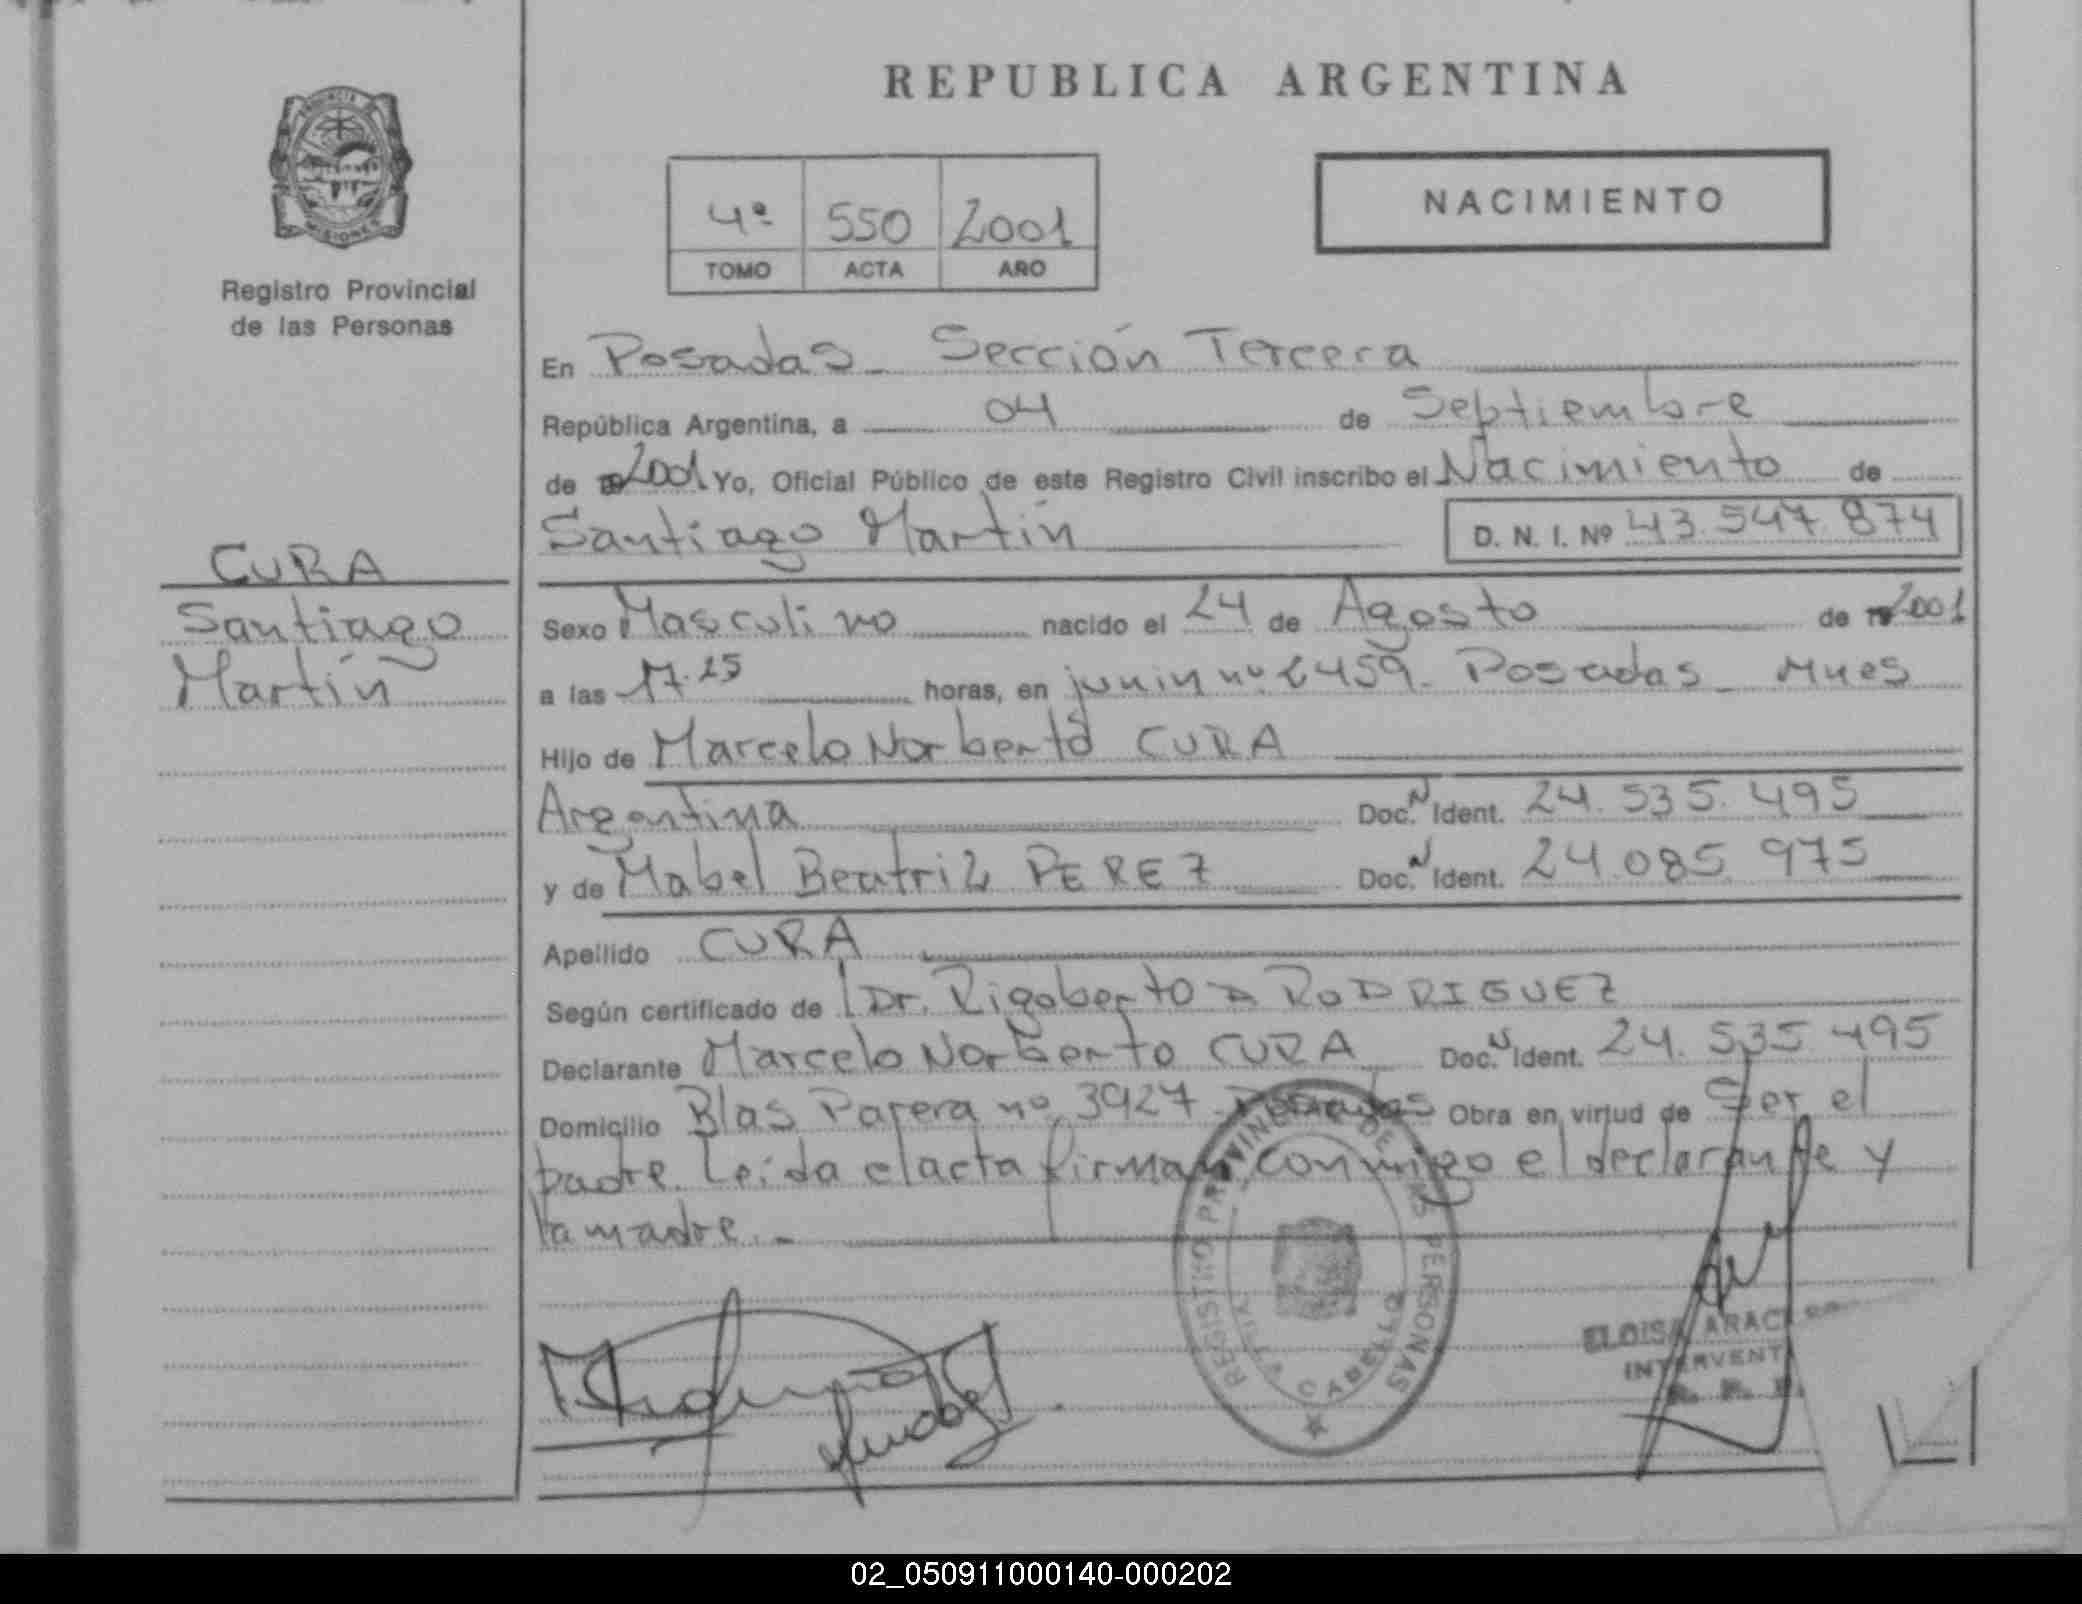 REPUBLICA ARGENTINA
NACIMIENTO
4º 550 2001
TOMO ACTA AÑO
PROVINCIA DE
MISIONES
Registro Provincial
de las Personas
CURA
Santiago
Martín
En Posadas - Sección Tercera
República Argentina, a 04 de Septiembre
de 2001 Yo, Oficial Público de este Registro Civil inscribo el Nacimiento de
Santiago Martín D. N. I. Nº 43.547.874
Sexo Masculino nacido el 24 de Agosto de 2001
a las 17.25 horas, en junin nº 2459. Posadas - Mnes
Hijo de Marcelo Norberto CURA
Argentina Doc. N Ident. 24.535.495
y de Mabel Beatriz PEREZ Doc. N Ident. 24.085.975
Apellido CURA
Según certificado de Dr. Rigoberto D RODRIGUEZ
Declarante Marcelo Norberto CURA Doc. N Ident. 24.535.495
Domicilio Blas Parera nº 3927 - Posadas Obra en virtud de Ser el
padre. Leída el acta firman conmigo el declarante y
la madre. -
REGISTRO PROVINCIAL DE LAS PERSONAS
VILLA CABELLO
ELOISA ARAC
INTERVENT
R. P.
02_050911000140-000202